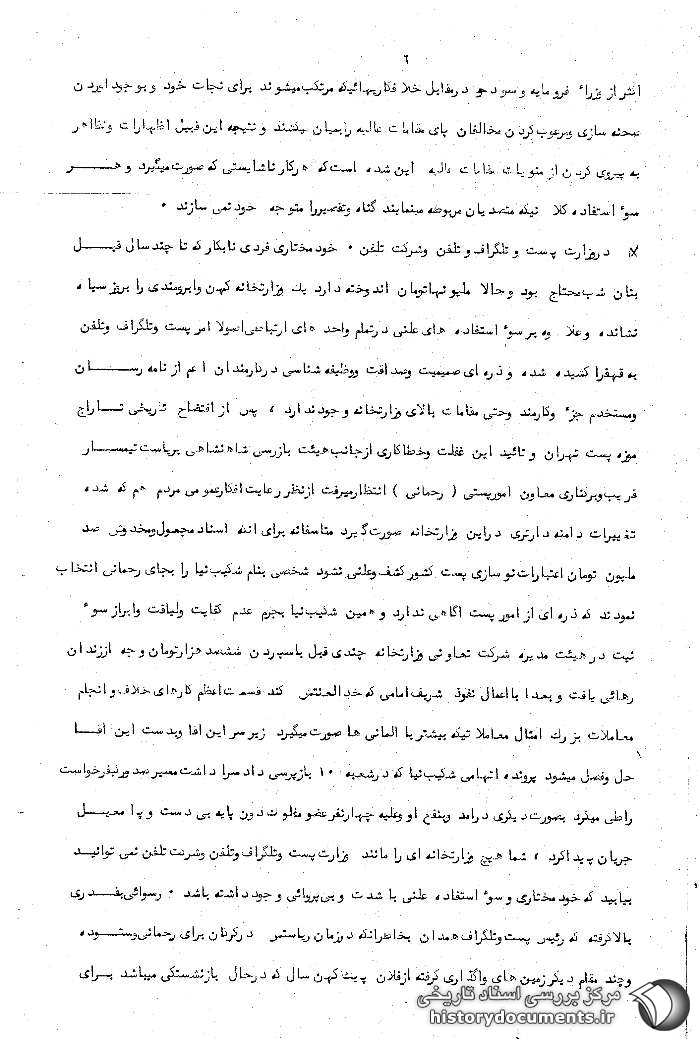 ٦
اکثر از وزراء فرومایه و سودجو درمقابل خلافکاریهائیکه مرتکب میشوند برای نجات خود و بوجود آوردن
صحنه سازی و مرعوب کردن مخالفان پای مقامات عالیه را بمیان میکشند و نتیجه این قبیل اظهارات و تظاهر
به پیروی کردن از منویات مقامات عالیه این شده است که هرکار ناشایستی که صورت میگیرد و هر
سوء استفاده کلا نیکه متصدیان مربوطه مینمایند گناه و تقصیر را متوجه خود نمی سازند ۰
دروزارت پست و تلگراف و تلفن وشرکت تلفن ۰ خودمختاری فردی نابکار که تا چند سال قبل
بنان شب محتاج بود و حالا ملیونها تومان اندوخته دارد یک وزارتخانه کهن و آبرومندی را بروز سیاه
نشانده وعلاوه بر سوء استفاده های علنی درتمام واحد های ارتباطی اصولا امر پست وتلگراف وتلفن
به قهقرا کشیده شده و ذره ای صمیمیت وصداقت ووظیفه شناسی در کارمندان اعم از نامه رسان
ومستخدم جزء وکارمند وحتی مقامات بالای وزارتخانه وجود ندارد ، پس از افتضاح تاریخی تاراج
موزه پست تهران و تائید این غفلت وخطاکاری ازجانب هیئت بازرسی شاهنشاهی بریاست تیمسار
قریب وبرکناری معاون امور پستی ( رحمانی ) انتظار میرفت ازنظر رعایت افکار عمومی مردم هم که شده
تغییرات دامنه دارتری دراین وزارتخانه صورت گیرد متاسفانه برای آنکه اسناد مجعول ومخدوش صد
ملیون تومان اعتبارات نوسازی پست کشور کشف وعلنی نشود شخصی بنام شکیب نیا را بجای رحمانی انتخاب
نمودند که ذره ای از امور پست آگاهی ندارد و همین شکیب نیا بجرم عدم کفایت ولیاقت وابراز سوء
نیت درهیئت مدیره شرکت تعاونی وزارتخانه چندی قبل باسپردن ششصد هزارتومان وجه اززندان
رهائی یافت و بعدا بااعمال نفوذ شریف امامی که خدا لعنتش کند قسمت اعظم کارهای خلاف وانجام
معاملات بزرگ امثال معاملاتیکه بیشتر با آلمانی ها صورت میگیرد زیر سر این آقا وبدست این آقا
حل وفصل میشود پرونده اتهامی شکیب نیا که درشعبه ۱۰ بازپرسی دادسرا داشت مسیر صدور کیفرخواست
راطی میکرد بصورت دیگری درآمد وبنفع او وعلیه چهارنفر عضو مفلوک دون پایه بی دست و پا معیل
جریان پیدا کرد ، شما هیچ وزارتخانه ای را مانند وزارت پست وتلگراف وتلفن وشرکت تلفن نمی توانید
بیابید که خودمختاری وسوء استفاده علنی باشدت و بی پروائی وجود داشته باشد ۰ رسوائی بقدری
بالا گرفته که رئیس پست وتلگراف همدان بخاطر آنکه درزمان ریاستش درکرمان برای رحمانی وستوده
وچند مقام دیگر زمین های واگذاری گرفته ازفلان پیک کهن سال که درحال بازنشستگی میباشد برای
مرکز بررسی اسناد تاریخی
historydocuments.ir